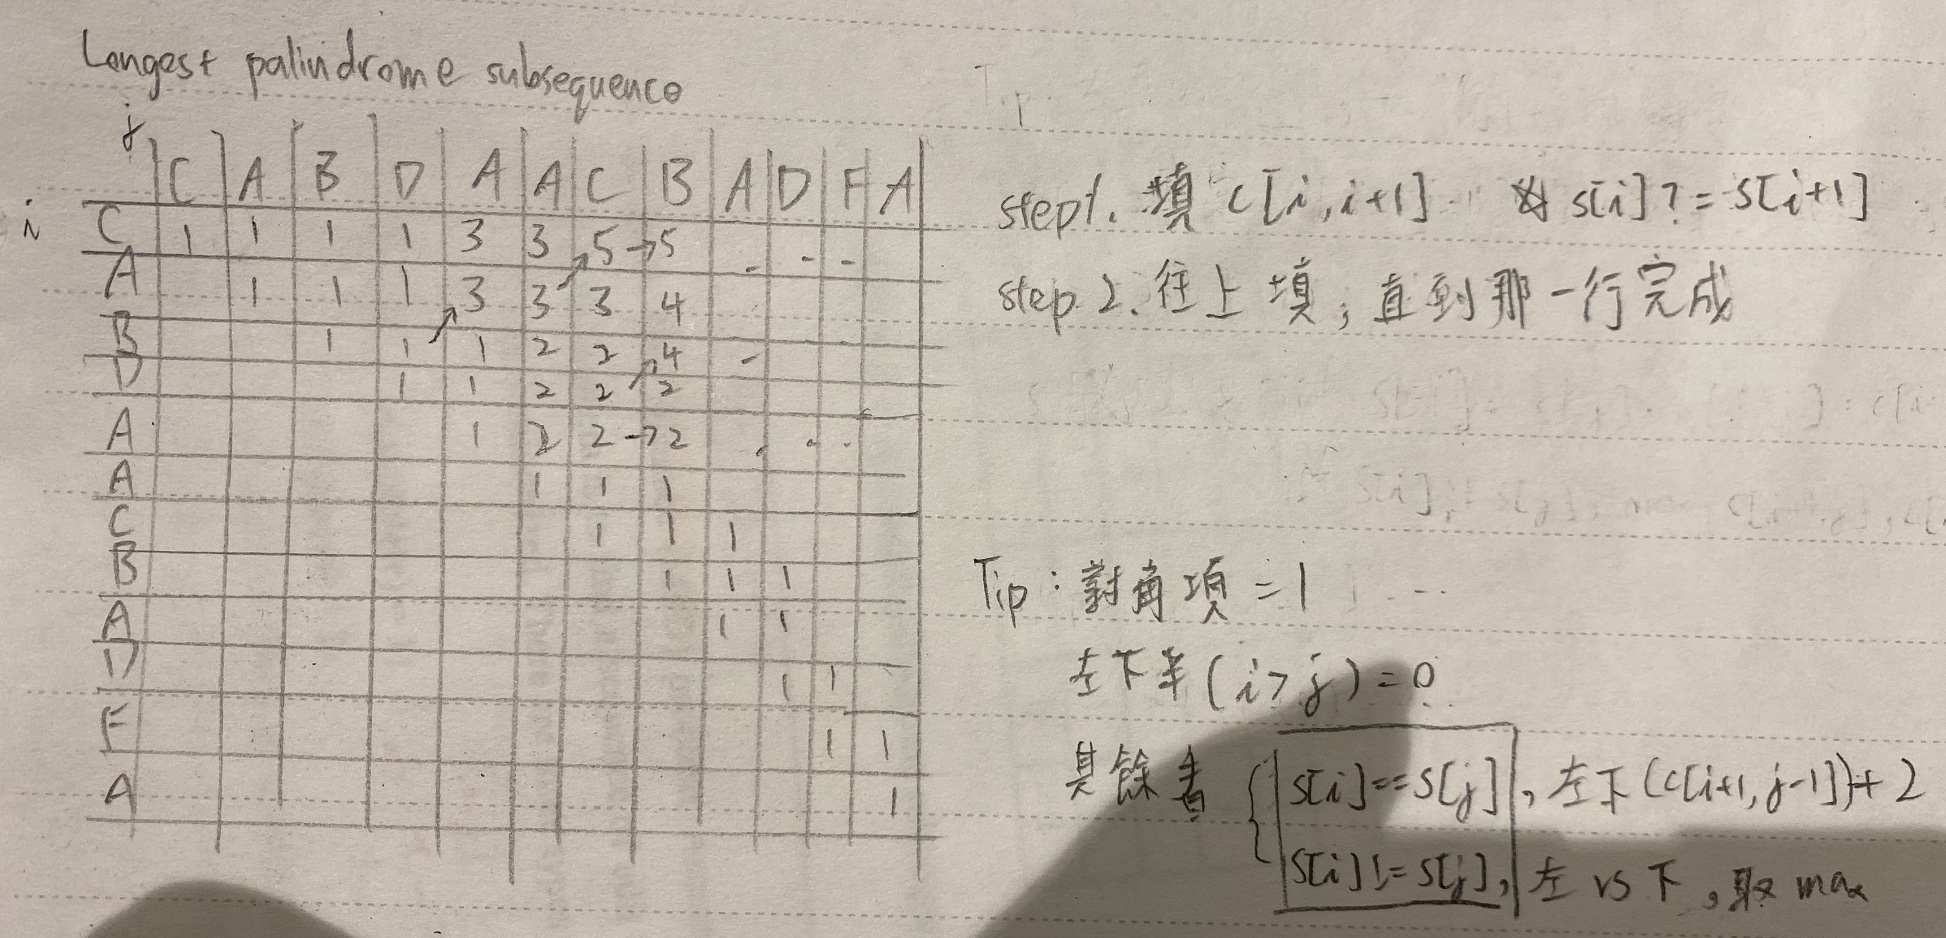 Longest palindrome subsequence
j
C A B D A A C B A D F A
i
C 1 1 1 1 3 3 5→5 . . .
A 1 1 1 3 3 3 4
B 1 1 1 2 2 4 -
D 1 1 2 2 2
A 1 2 2→2 . . .
A 1 1 1
C 1 1 1
B 1 1 1
A 1 1
D 1 1
F 1 1
A 1
step1. 填 c[i,i+1] s[i]?=s[i+1]
step 2. 往上填,直到那一行完成
Tip:對角項=1 ...
左下半(i>j)=0
其餘者 { s[i]==s[j], 左下(c[i+1,j-1])+2
s[i]!=s[j], 左 vs 下,取 max